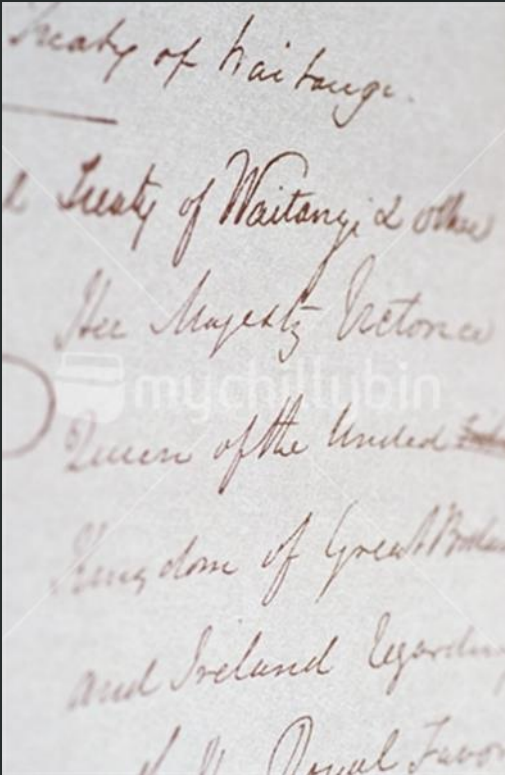 Treaty of Waitangi.
Treaty of Waitangi & other
Her Majesty Victoria
mychillybin
Queen of the United
Kingdom of Great Britain
and Ireland Regarding
Royal Favor